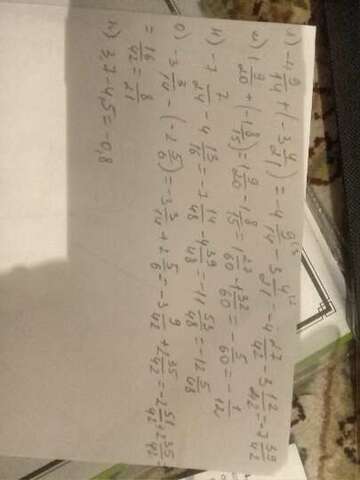 л) -4 9/14 + (-3 4/21) = -4 9/14 - 3 4/21 = -4 27/42 - 3 12/42 = -7 39/42
м) 1 9/20 + (-1 8/15) = 1 9/20 - 1 8/15 = 1 27/60 - 1 32/60 = -5/60 = -1/12
н) -7 7/24 - 4 13/16 = -7 14/48 - 4 39/48 = -11 53/48 = -12 5/48
о) -3 3/14 - (-2 5/6) = -3 3/14 + 2 5/6 = -3 9/42 + 2 35/42 = -2 51/42 + 2 35/42 =
= 16/42 = 8/21
3,7-4,5=-0,8